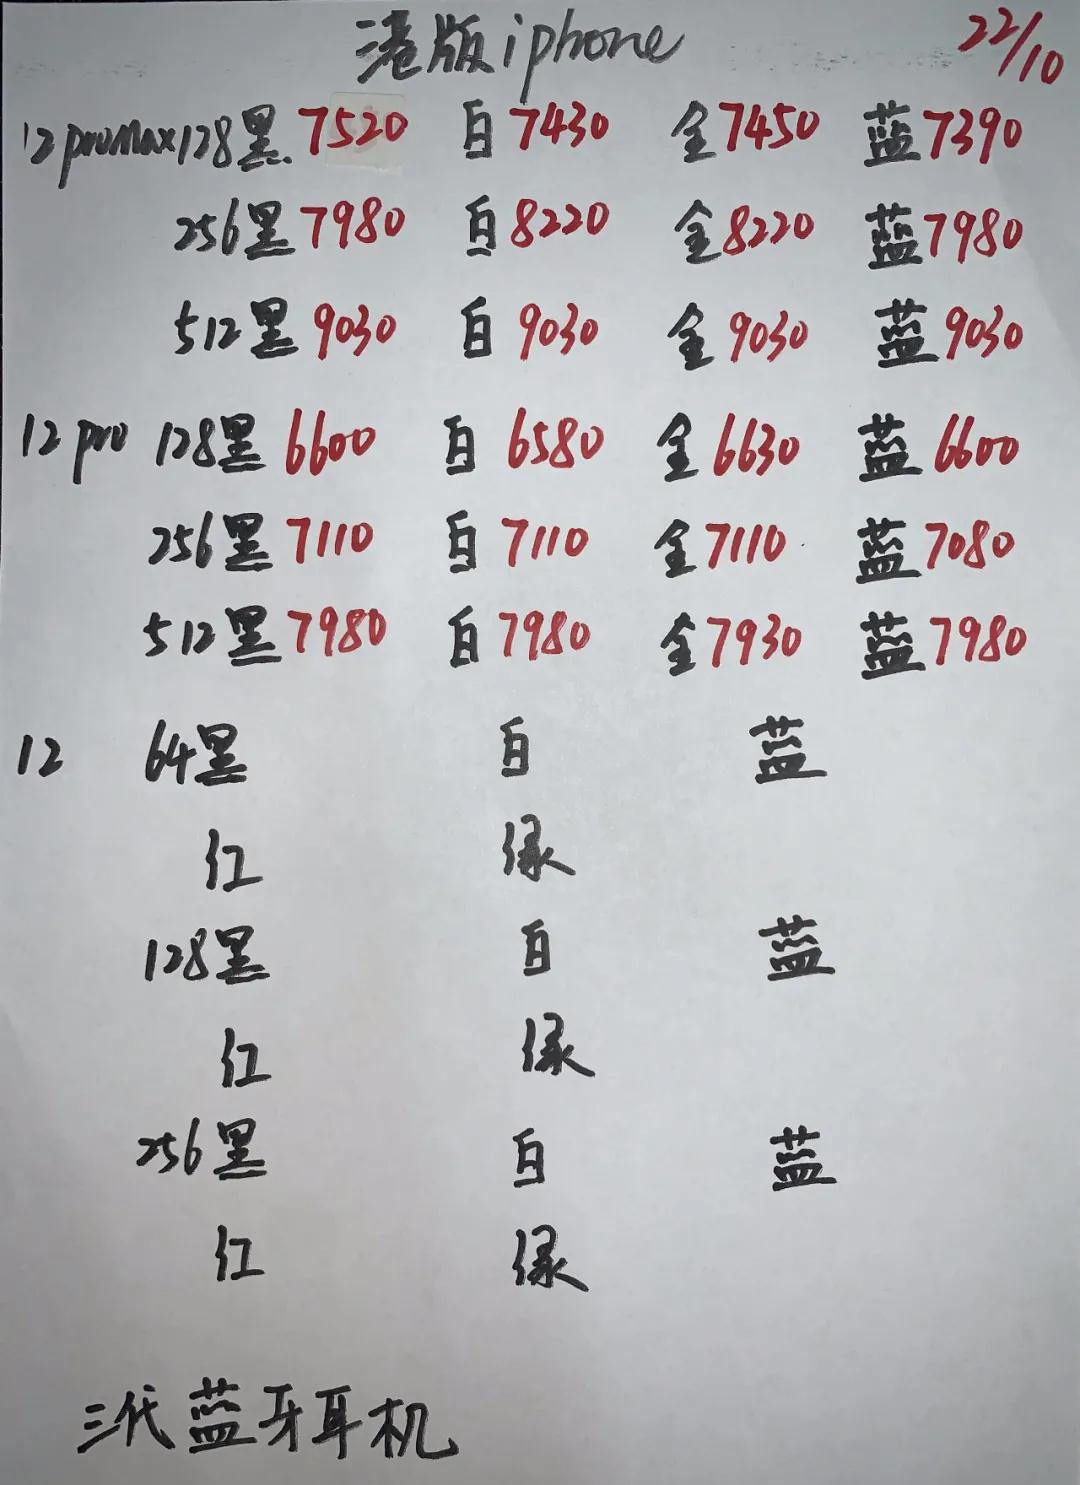 港版iphone 22/10
12proMax128黑7520 白7430 金7450 蓝7390
256黑7980 白8220 金8220 蓝7980
512黑9030 白9030 金9030 蓝9030
12pro 128黑6600 白6580 金6630 蓝6600
256黑7110 白7110 金7110 蓝7080
512黑7980 白7980 金7930 蓝7980
12 64黑 白 蓝
红 绿
128黑 白 蓝
红 绿
256黑 白 蓝
红 绿
三代蓝牙耳机